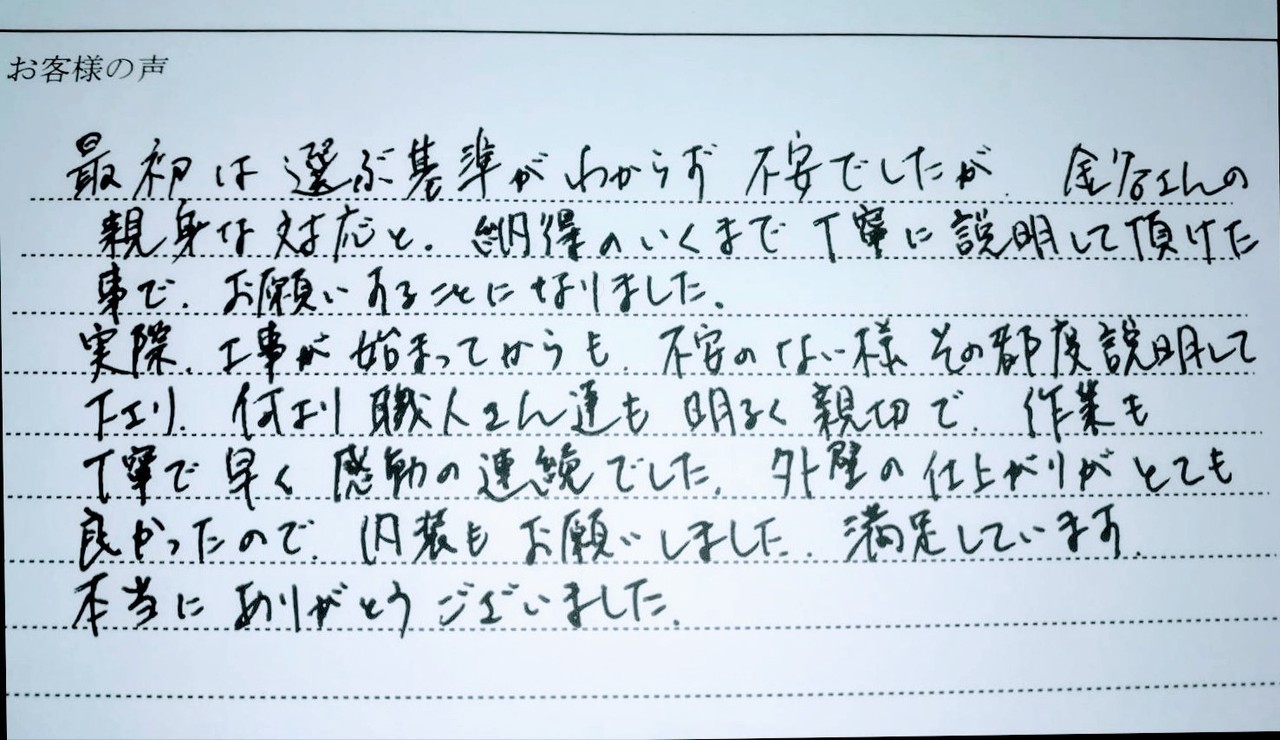 お客様の声
最初は選ぶ基準がわからず不安でしたが、金谷さんの
親身な対応と、納得のいくまで丁寧に説明して頂けた
事で、お願いすることになりました。
実際、工事が始まってからも、不安のない様その都度説明して
下さり、何より職人さん達も明るく親切で、作業も
丁寧で早く感動の連続でした。外壁の仕上がりがとても
良かったので、内装もお願いしました。満足しています。
本当にありがとうございました。